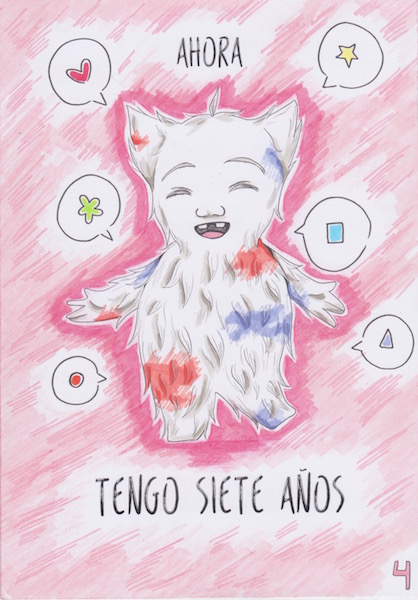 AHORA
TENGO SIETE AÑOS
4